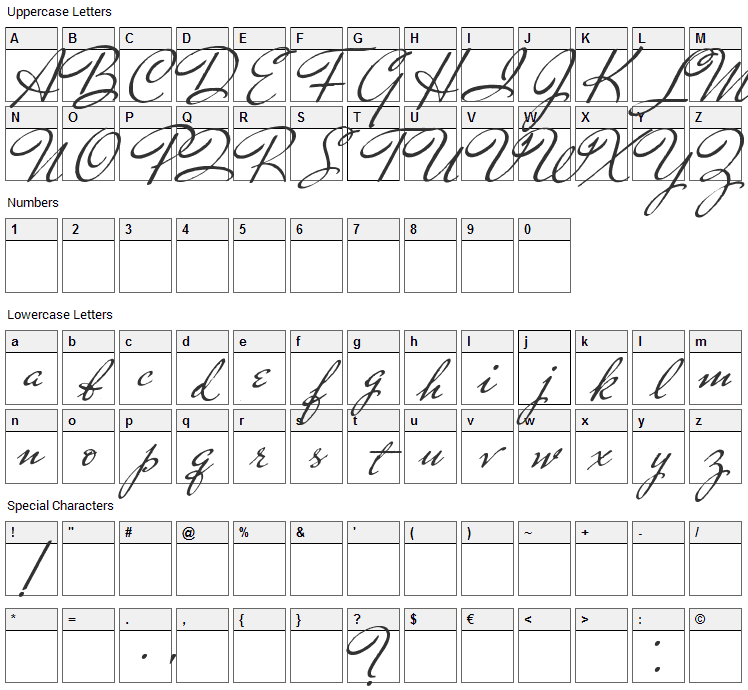 Uppercase Letters
A B C D E F G H I J K L M
A B C D E F G H I J K L M
N O P Q R S T U V W X Y Z
N O P Q R S T U V W X Y Z
Numbers
1 2 3 4 5 6 7 8 9 0
Lowercase Letters
a b c d e f g h I j k l m
a b c d e f g h i j k l m
n o p q r s t u v w x y z
n o p q r s t u v w x y z
Special Characters
! " # @ % & ' ( ) ~ + - /
!
* = . , { } ? $ € < > : ©
. , ? :